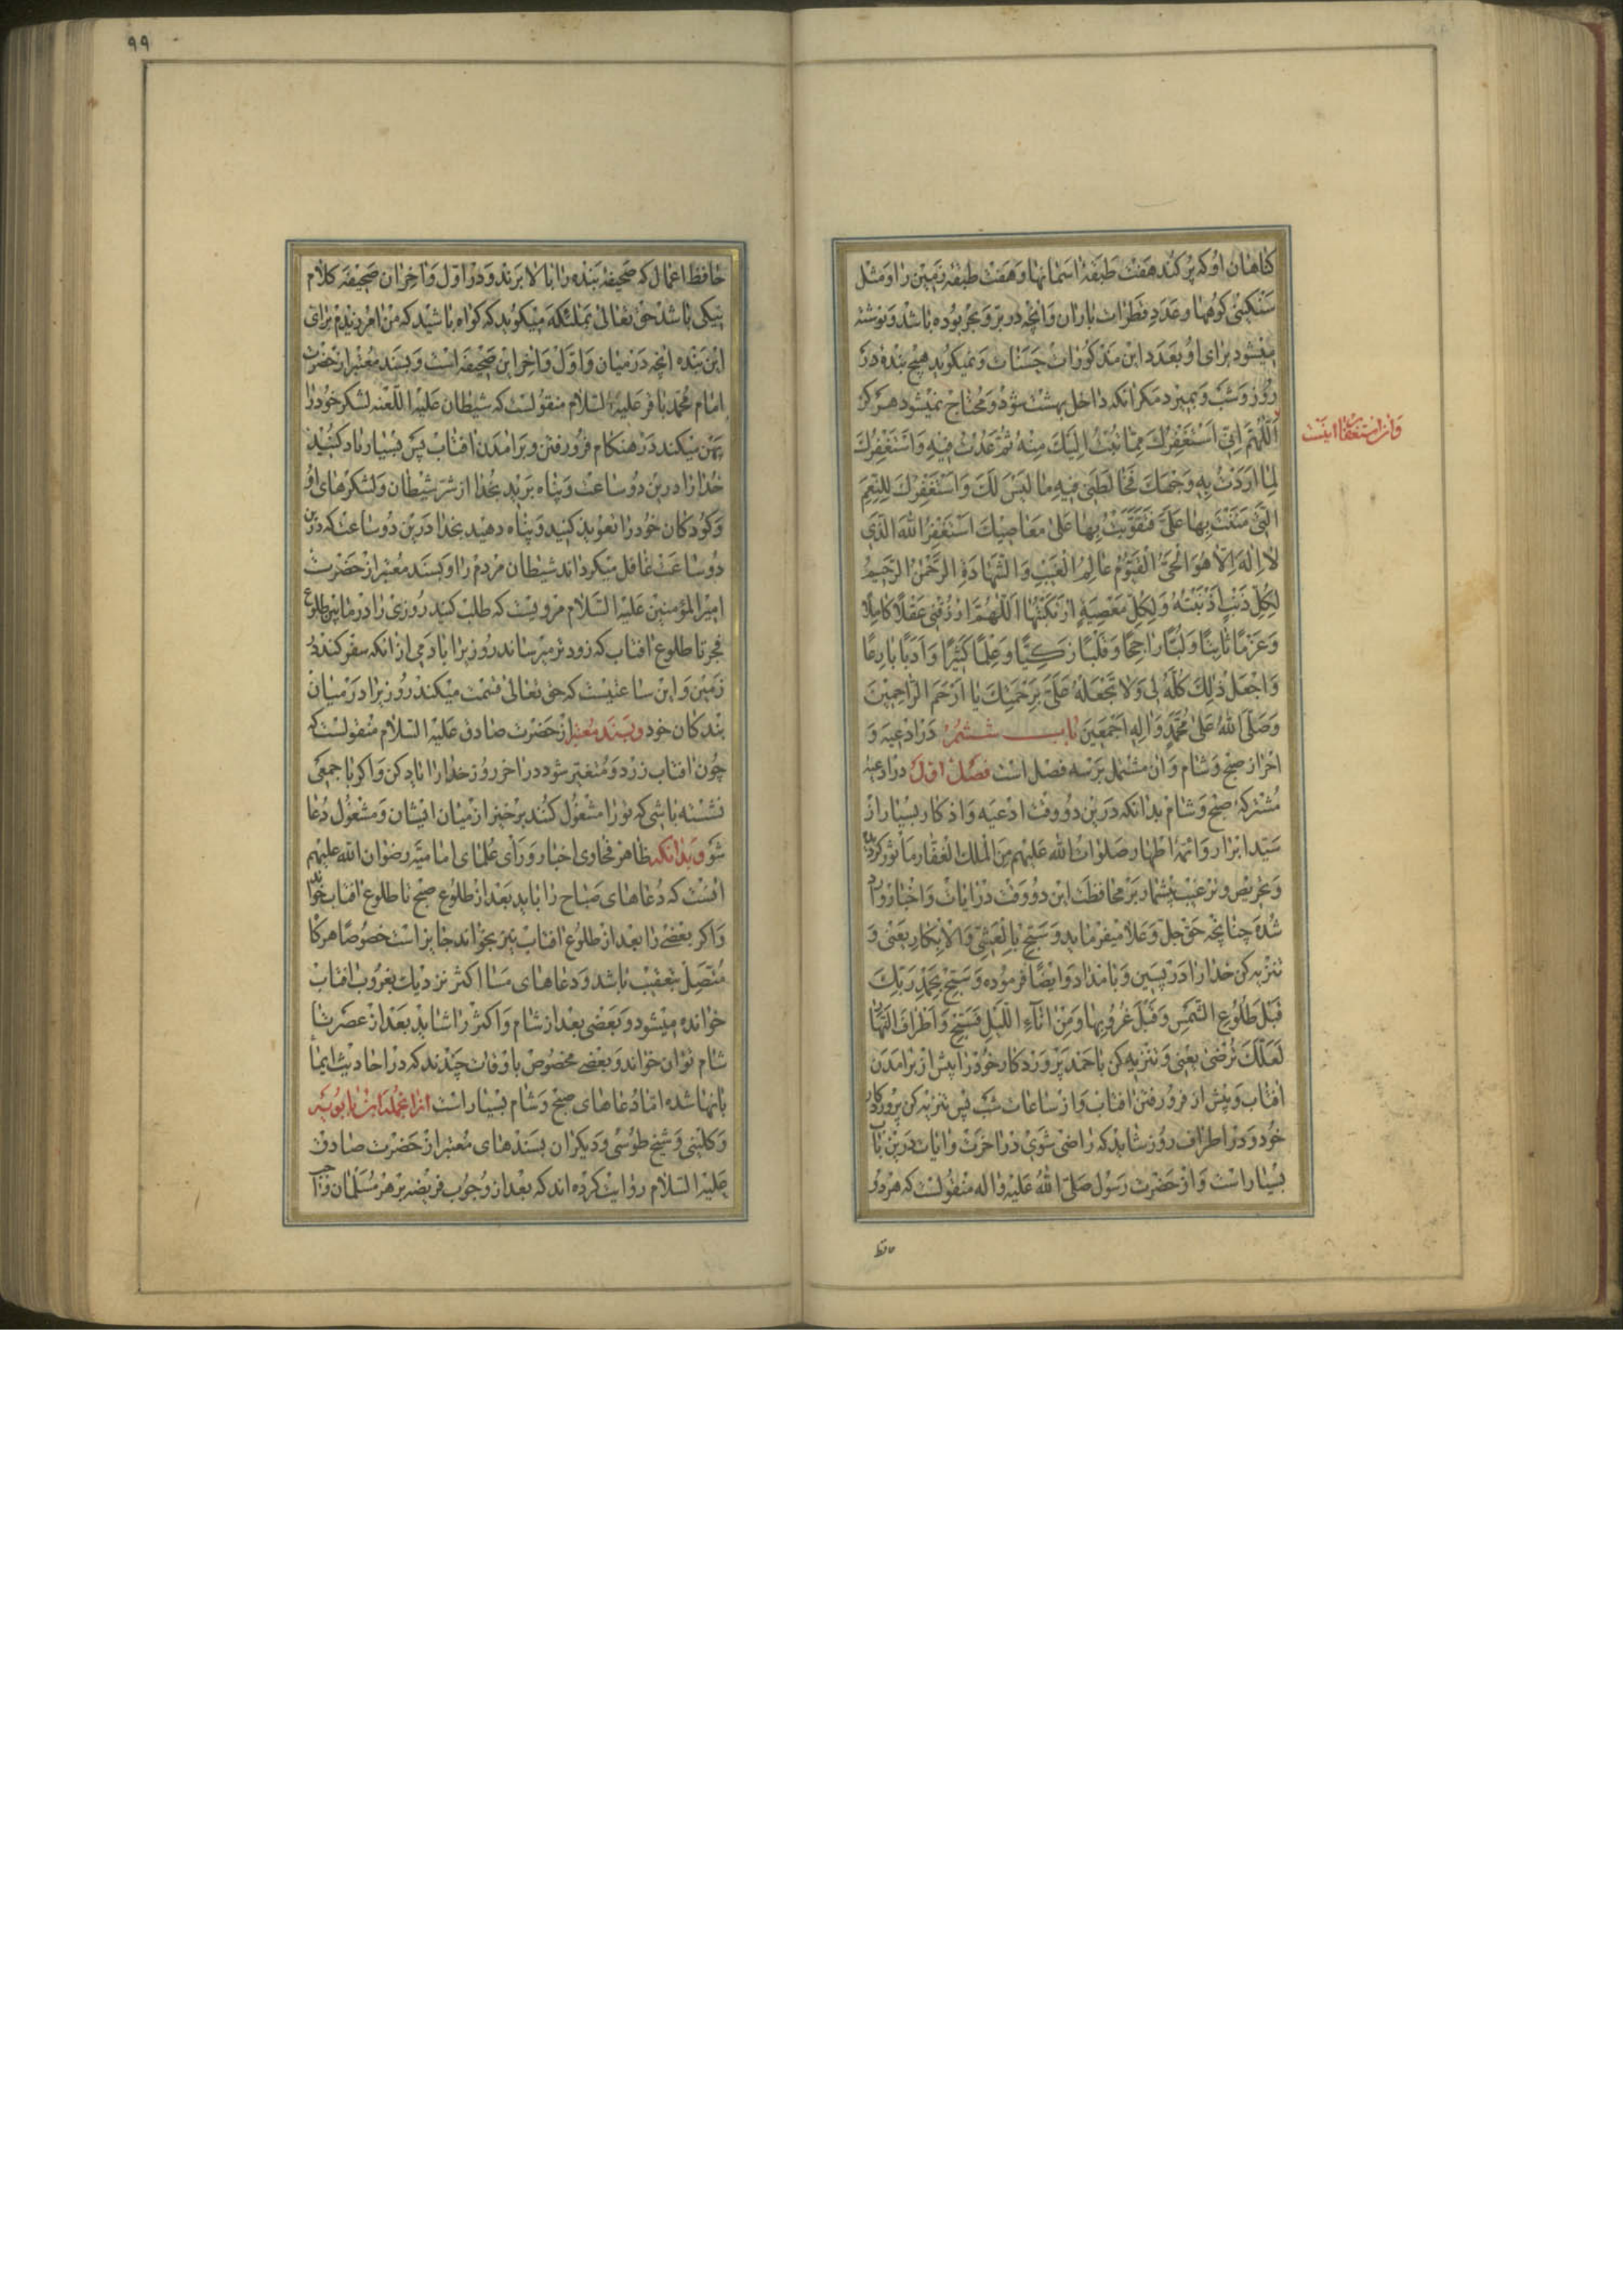 كناهان او كه پر كند هفت طبقهٔ اسمانها و هفت طبقهٔ زمين را و مثل
سنكينی كوهها و عدد قطرات باران و انچه در بر و بحر بوده باشد و نوشته
ميشود برای او بعدد اين مذكورات حسنات و نميكويد هيچ بنده در
روز و شب و بميرد مكر انكه داخل بهشت شود و محتاج نميشود هركز
و ان استغفار اينست
اَللّٰهُمَّ اِنّی اَسْتَغْفِرُكَ مِمّا تُبْتُ اِلَيْكَ مِنْهُ ثُمَّ عُدْتُ فيهِ وَاَسْتَغْفِرُكَ
لِما اَرَدْتُ بِهِ وَجْهَكَ فَخالَطَنی فيهِ ما لَيْسَ لَكَ وَاَسْتَغْفِرُكَ لِلنِّعَمِ
الَّتی مَنَنْتَ بِها عَلَیَّ فَتَقَوَّيْتُ بِها عَلی مَعاصيكَ اَسْتَغْفِرُ اللّٰهَ الَّذی
لا اِلهَ اِلاّ هُوَ الْحَیُّ الْقَيُّومُ عالِمُ الْغَيْبِ وَالشَّهادَةِ الرَّحْمٰنُ الرَّحيمُ
لِكُلِّ ذَنْبٍ اَذْنَبْتُهُ وَلِكُلِّ مَعْصِيَةٍ ارْتَكَبْتُها اَللّٰهُمَّ ارْزُقْنی عَقْلاً كامِلاً
وَعَزْماً ثاقِباً وَلُبّاً راجِحاً وَقَلْباً زَكِيّاً وَعِلْماً كَثيراً وَاَدَباً بارِعاً
وَاجْعَلْ ذٰلِكَ كُلَّهُ لی وَلا تَجْعَلْهُ عَلَیَّ بِرَحْمَتِكَ يا اَرْحَمَ الرّاحِمينَ
وَصَلَّی اللّٰهُ عَلی مُحَمَّدٍ وَالِهِ اَجْمَعينَ باب ششم در ادعيه و
احراز صبح و شام و ان مشتمل بر سه فصل است فصل اول در ادعيه
مشتركهٔ صبح و شام بدانكه درين دو وقت ادعيه و اذكار بسيار از
سيد ابرار و ائمهٔ اطهار صلوات الله عليهم من الملك الغفار ماثور كرديده
و تحريص و ترغيب بيشمار بر محافظت اين دو وقت در ايات و اخبار وارد
شده چنانچه حق جل و علا ميفرمايد وَسَبِّحْ بِالْعَشِیِّ وَالْاِبْكارِ يعنی و
تنزيه كن خدا را در پسين و بامداد و ايضا فرموده وَسَبِّحْ بِحَمْدِ رَبِّكَ
قَبْلَ طُلُوعِ الشَّمْسِ وَقَبْلَ غُرُوبِها وَمِنْ اناءِ اللَّيْلِ فَسَبِّحْ وَاَطْرافَ النَّهارِ
لَعَلَّكَ تَرْضی يعنی و تنزيه كن با حمد پروردكار خود را پيش از برامدن
افتاب و پيش از فرو رفتن افتاب و از ساعات شب پس تنزيه كن پروردكار
خود و در اطراف روز شايد كه راضی شوی در اخرت و ايات درين باب
بسيار است و از حضرت رسول صلی الله عليه و اله منقولست كه هر دو
٩٩
حافظ اعمال كه صحيفهٔ بنده را بالا برند و در اول و اخر ان صحيفه كلام
نيكی باشد حق تعالی بملئكه ميكويد كه كواه باشيد كه من امرزيدم برای
اين بنده انچه در ميان و اول و اخر اين صحيفه است و بسند معتبر از حضرت
امام محمد باقر عليه السلام منقولست كه شيطان عليه اللعنه لشكر خود را
پهن ميكند در هنكام فرو رفتن و برامدن افتاب پس بسيار ياد كنيد
خدا را درين دو ساعت و پناه بريد بخدا از شر شيطان و لشكرهای او
و كودكان خود را تعويذ كنيد و پناه دهيد بخدا درين دو ساعت كه درين
دو ساعت غافل ميكرداند شيطان مردم را و بسند معتبر از حضرت
امير المؤمنين عليه السلام مرويست كه طلب كنيد روزی را در مابين طلوع
فجر تا طلوع افتاب كه زودتر ميرساند روزی را بادمی از انكه سفر كند در
زمين و اين ساعتيست كه حق تعالی قسمت ميكند روزی را در ميان
بندكان خود و بسند معتبر از حضرت صادق عليه السلام منقولست كه
چون افتاب زرد و متغير شود در اخر روز خدا را ياد كن و اكر با جمعی
نشسته باشی كه تو را مشغول كنند برخيز از ميان ايشان و مشغول دعا
شو و بدانكه ظاهر فحاوی اخبار و رأی علمای اماميه رضوان الله عليهم
انست كه دعاهای صباح را بايد بعد از طلوع صبح تا طلوع افتاب خواند
و اكر بعضی را بعد از طلوع افتاب نيز بخواند جايز است خصوصا هركاه
متصل بتعقيب باشد و دعاهای مسا اكثر نزديك بغروب افتاب
خوانده ميشود و بعضی بعد از شام و اكثر را شايد بعد از عصر تا
شام توان خواند و بعضی مخصوص باوقات چندند كه در احاديث ايما
بانها شده اما دعاهای صبح و شام بسيار است از انجمله ابن بابويه
و كلينی و شيخ طوسی و ديكران بسندهای معتبر از حضرت صادق
عليه السلام روايت كرده اند كه بعد از وجوب فريضه بر هر مسلمان واجب